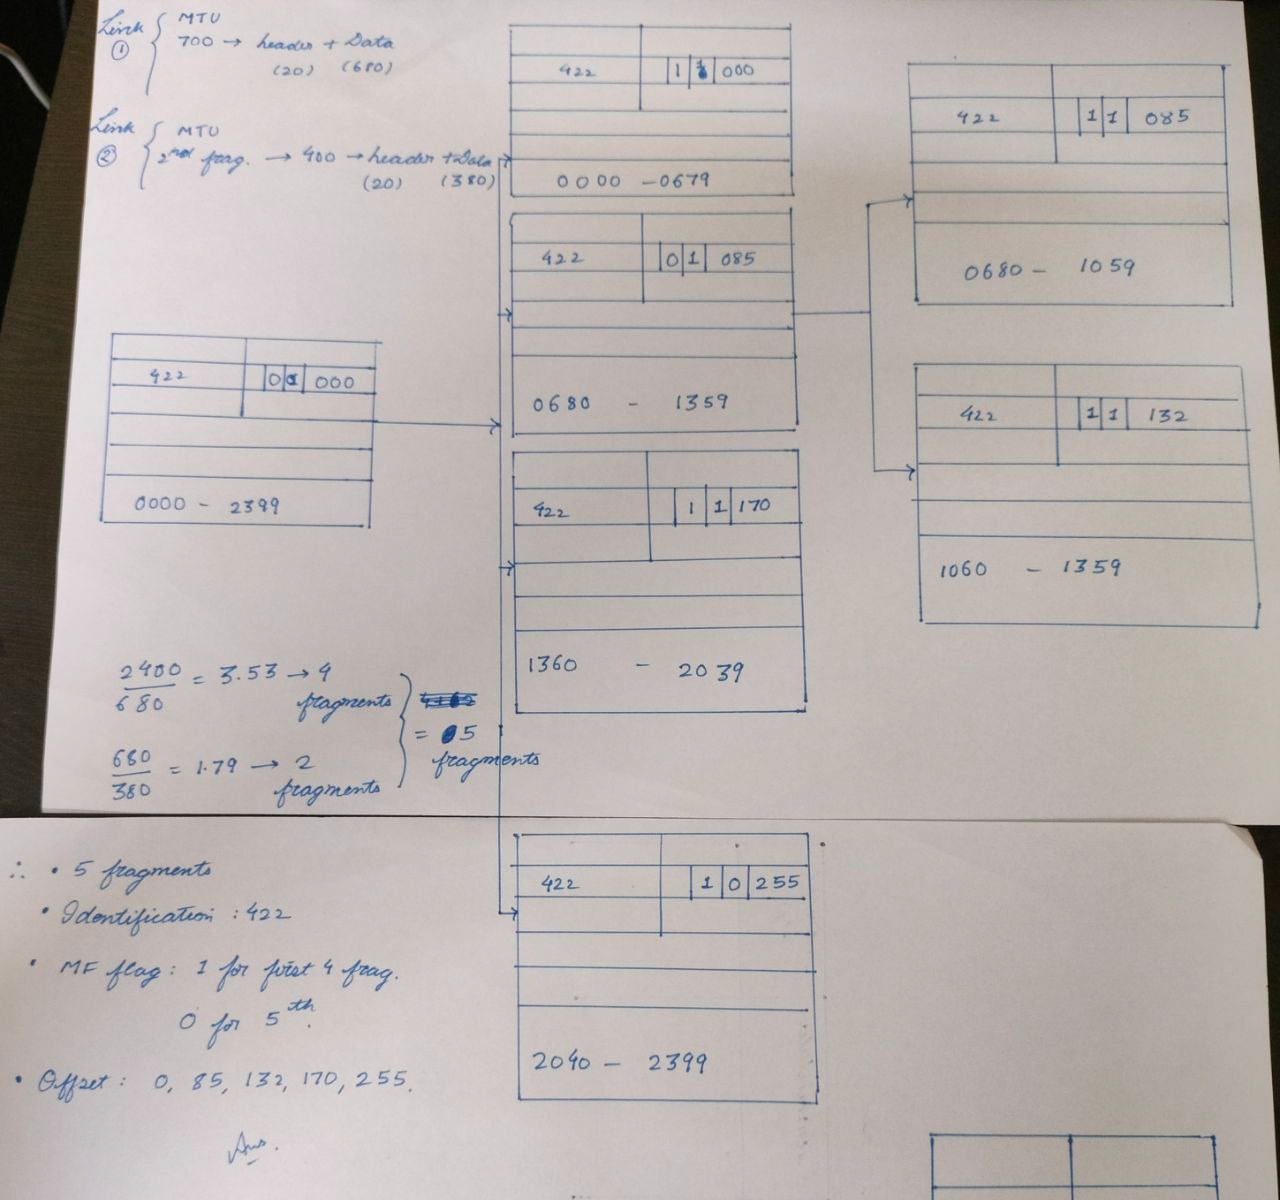 Link ① { MTU
700 → header + Data
(20) (680)
Link ② { MTU
2nd frag. → 400 → header + Data
(20) (380)
422 0 000
0000 - 2399
422 1 1 000
0000 - 0679
422 0 1 085
0680 - 1359
422 1 1 170
1360 - 2039
422 1 0 255
2040 - 2399
422 1 1 085
0680 - 1059
422 1 1 132
1060 - 1359
2400/680 = 3.53 → 4 fragments
680/380 = 1.79 → 2 fragments
= 5 fragments
∴ • 5 fragments
• Identification : 422
• MF flag : 1 for first 4 frag.
0 for 5th.
• Offset : 0, 85, 132, 170, 255.
Ans.